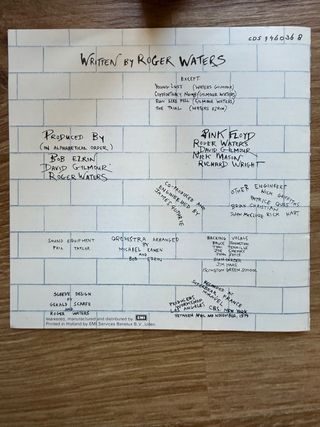 CDS 7 46036 8
WRITTEN BY ROGER WATERS
EXCEPT
YOUNG LUST (WATERS GILMOUR)
COMFORTABLY NUMB (GILMOUR WATERS)
RUN LIKE HELL (GILMOUR WATERS)
THE TRIAL (WATERS EZRIN)
PRODUCED BY
(IN ALPHABETICAL ORDER)
BOB EZRIN
DAVID GILMOUR
ROGER WATERS
PINK FLOYD
ROGER WATERS
DAVID GILMOUR
NICK MASON
RICHARD WRIGHT
CO-PRODUCED AND
ENGINEERED BY
JAMES GUTHRIE
OTHER ENGINEERS
NICK GRIFFITHS
PATRICE QUEF
BRIAN CHRISTIAN
JOHN McCLURE RICK HART
SOUND EQUIPMENT
PHIL TAYLOR
ORCHESTRA ARRANGED
BY
MICHAEL KAMEN
AND
BOB EZRIN
BACKING VOCALS
BRUCE JOHNSTON
TONI TENNILLE
JOE CHEMAY
JOHN JOYCE
JIM HAAS
ISLINGTON GREEN SCHOOL
SLEEVE DESIGN
BY
GERALD SCARFE
AND
ROGER WATERS
Marketed, manufactured and distributed by EMI
Printed in Holland by EMI Services Benelux B.V., Uden.
RECORDED AT
SUPERBEAR, FRANCE
MIRAVAL
CBS NEW YORK
PRODUCERS WORKSHOP
LOS ANGELES
BETWEEN APRIL AND NOVEMBER, 1979